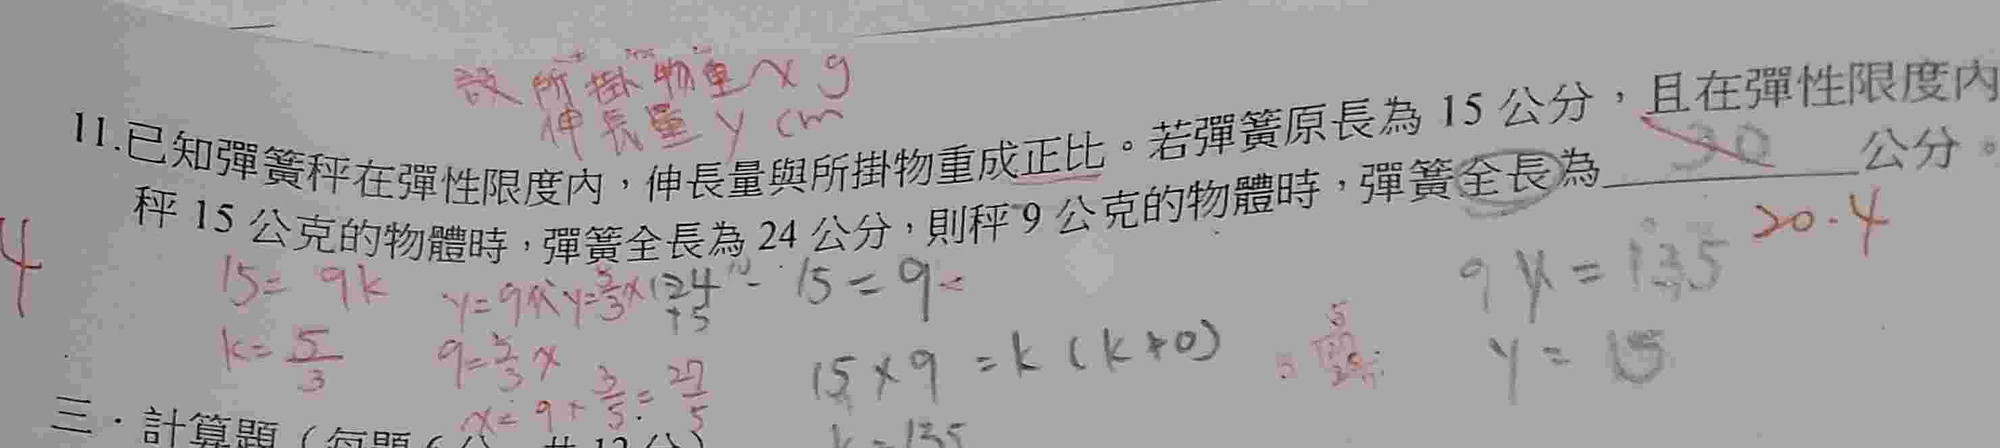 設所掛物重 x g
伸長量 y cm
11.已知彈簧秤在彈性限度內，伸長量與所掛物重成正比。若彈簧原長為 15 公分，且在彈性限度內
秤 15 公克的物體時，彈簧全長為 24 公分，則秤 9 公克的物體時，彈簧全長為 30 公分。
20.4
4
15 = 9k
k = 5/3
9 = 5/3 x
x = 9 × 3/5 = 27/5
24 - 15 = 9
15 × 9 = k (k≠0)
k = 135
9y = 135
y = 15
三．計算題